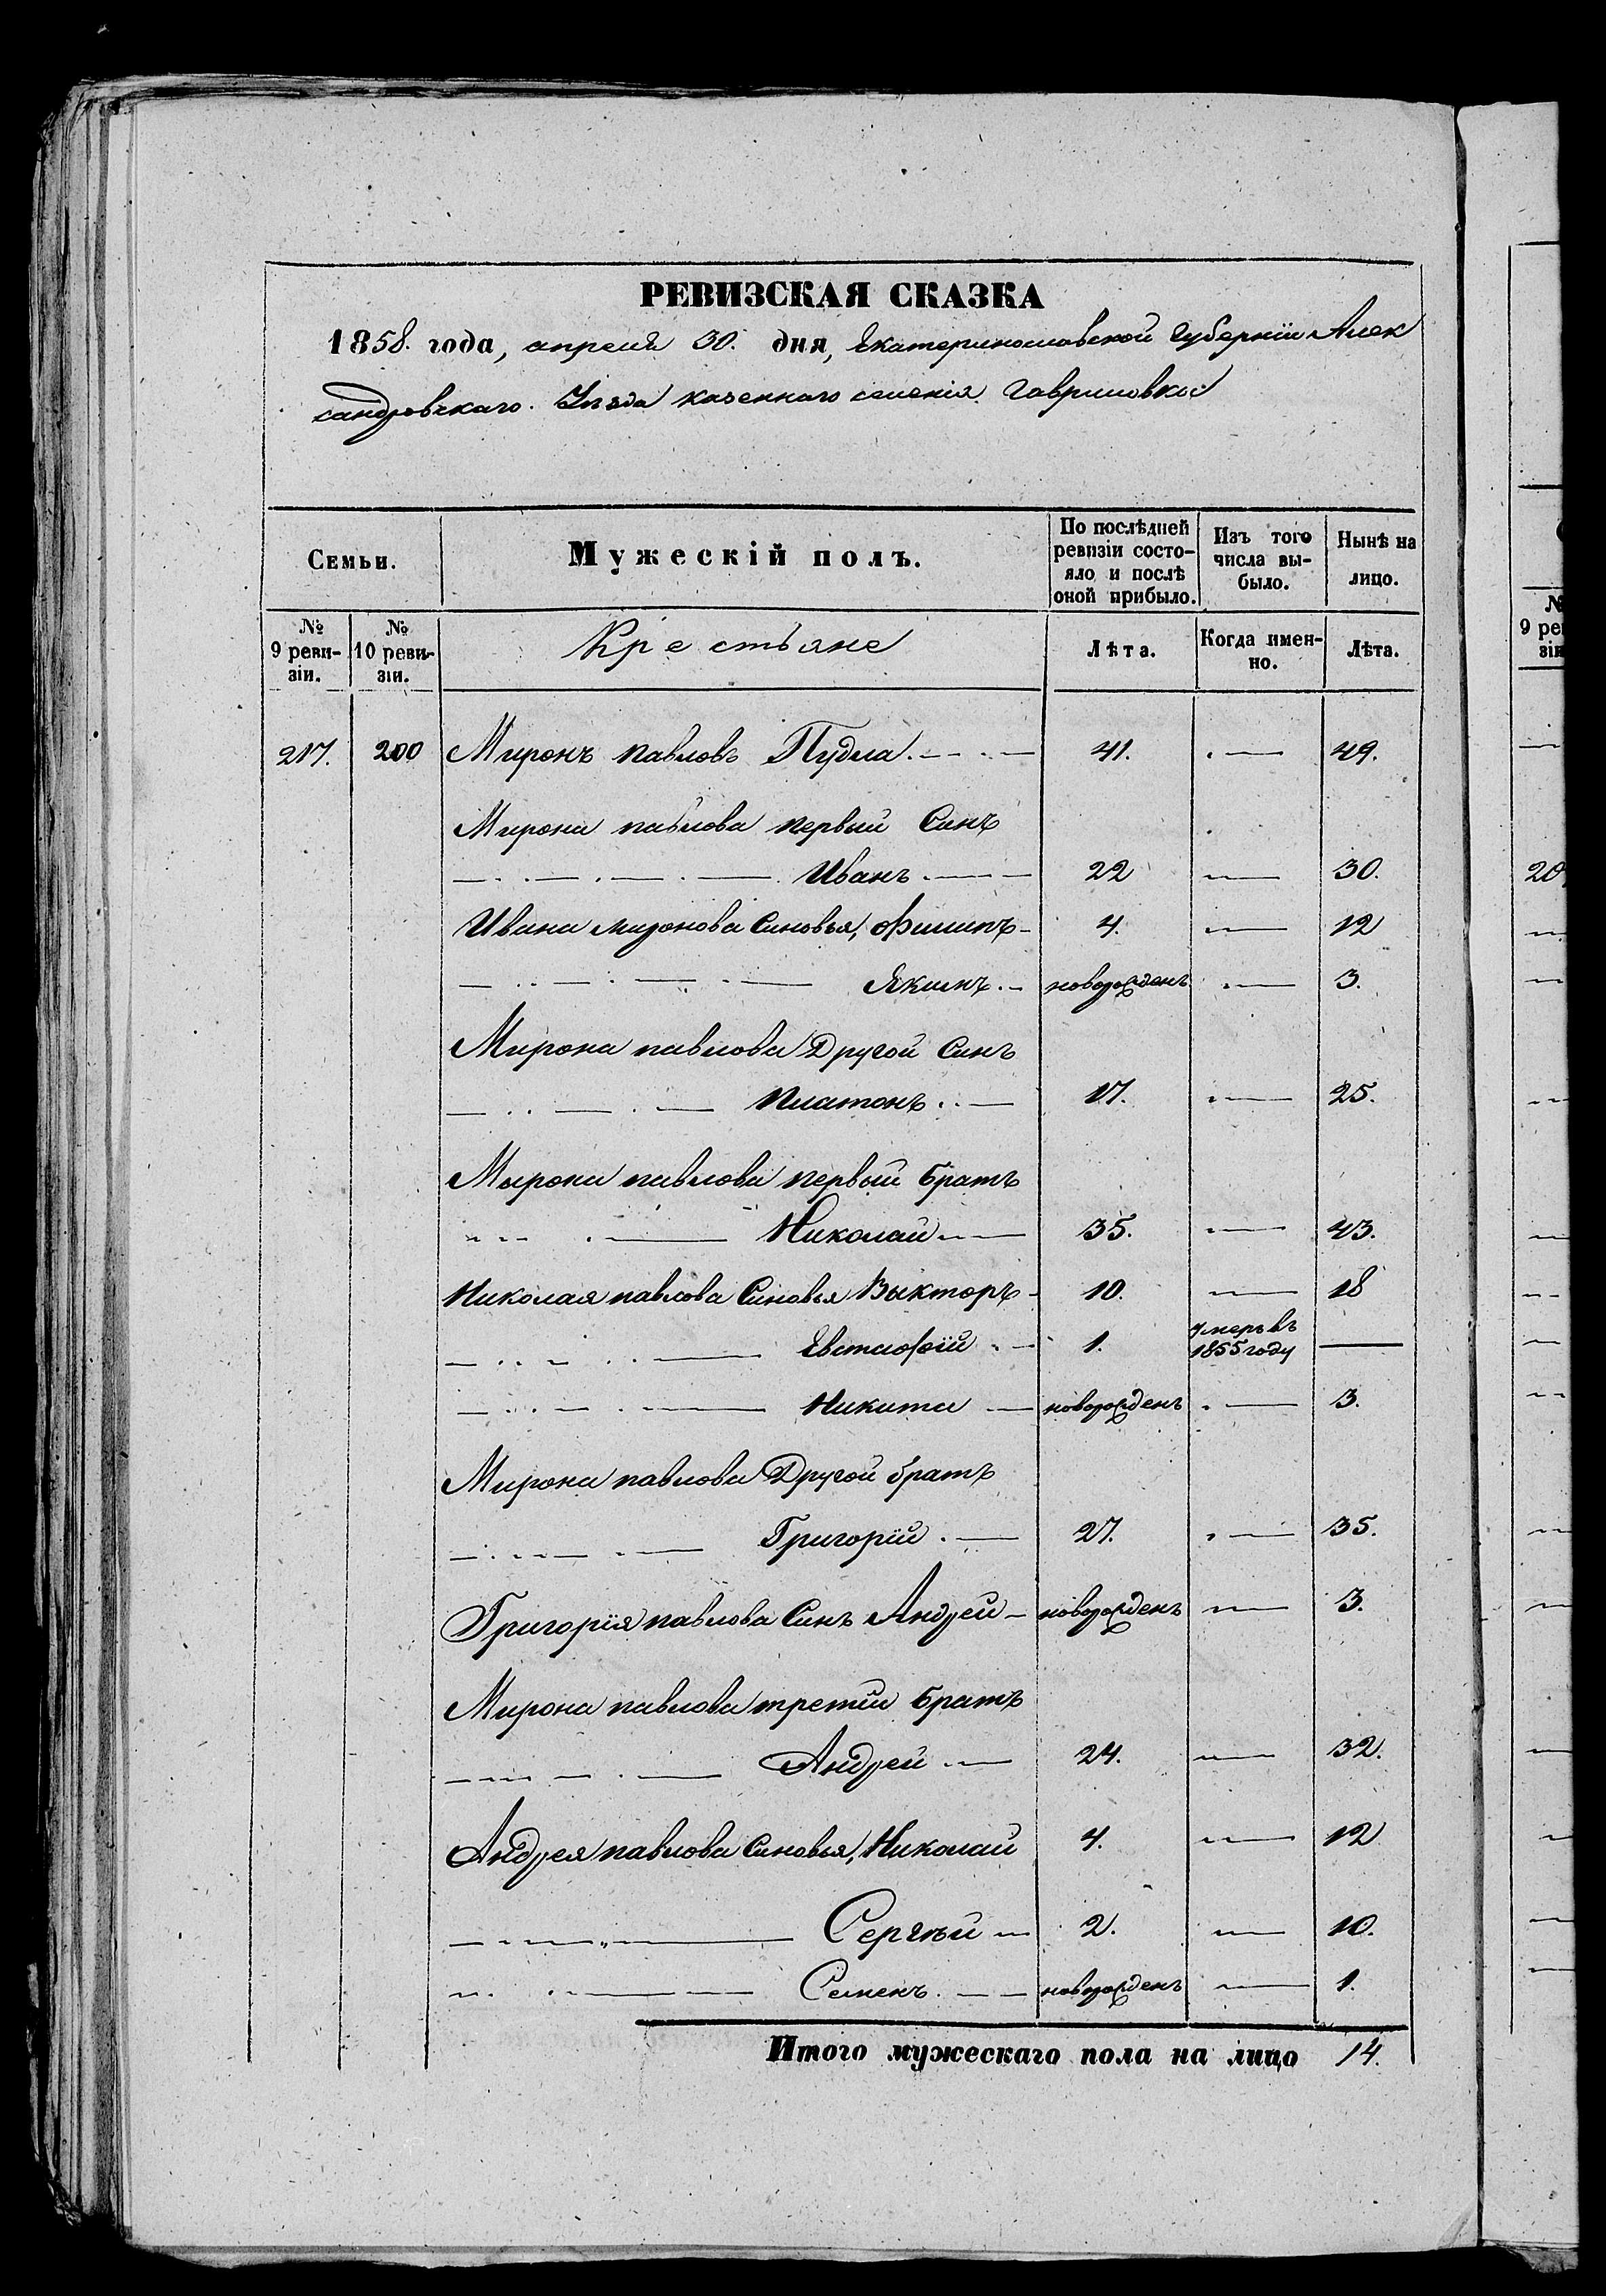 РЕВИЗСКАЯ СКАЗКА
1858. года, апреля 30. дня, Екатеринославской Губерніи Алек
сандровскаго. Уѣзда казеннаго селенія Гавриловки
Семьи. Мужескій полъ. По послѣдней ревизіи состо- яло и послѣ оной прибыло. Изъ того числа вы- было. Нынѣ на лицо.
№ 9 реви- зіи. № 10 реви- зіи. Крестьяне Лѣта. Когда имен- но. Лѣта.
217. 200 Миронъ павловъ Пудла 41. — 49.
Мирона павлова первый Синъ
Иванъ 22 — 30.
Ивана миронова Синовья, Филипъ 4. — 12
Якимъ новорожденъ — 3.
Мирона павлова Другой Синъ
Платонъ 17. — 25.
Мырона павлова первый братъ
Николай 35. — 43.
Николая павлова Синовья Выкторъ 10. — 18
Евстафій 1. умеръ въ 1855 году —
Никита новорожденъ — 3.
Мирона павлова Другой братъ
Григорій 27. — 35.
Григорія павлова Синъ Андрей новорожденъ — 3.
Мирона павлова третій братъ
Андрей 24. — 32.
Андрея павлова Синовья, Николай 4. — 12
Сергѣй 2. — 10.
Семенъ новорожденъ — 1.
Итого мужескаго пола на лицо 14.
№
9 ре
зі
20